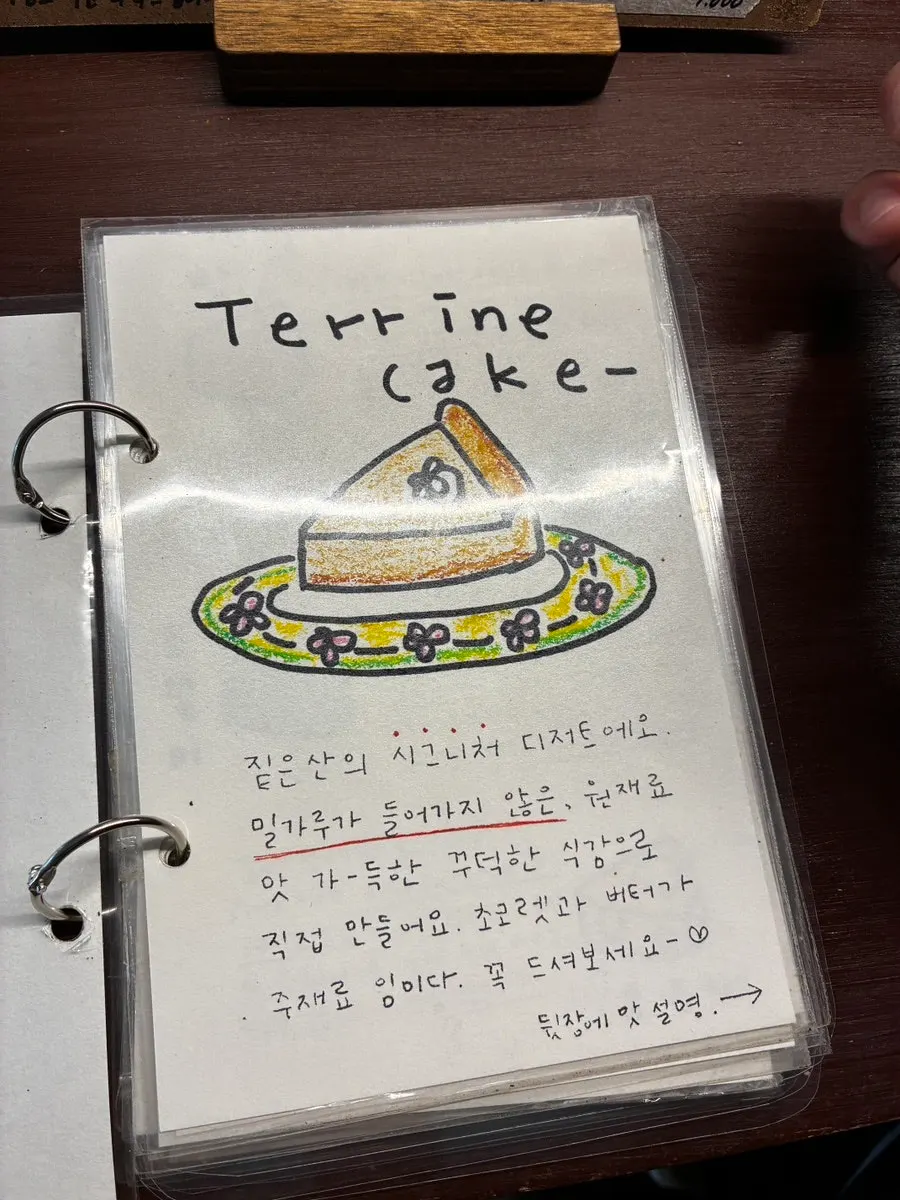 Terrine
cake-
짙은산의 시그니처 디저트에요.
밀가루가 들어가지 않은, 원재료
맛 가-득한 꾸덕한 식감으로
직접 만들어요. 초코렛과 버터가
주재료 임미다. 꼭 드셔보세요-
뒷장에 맛 설명. →